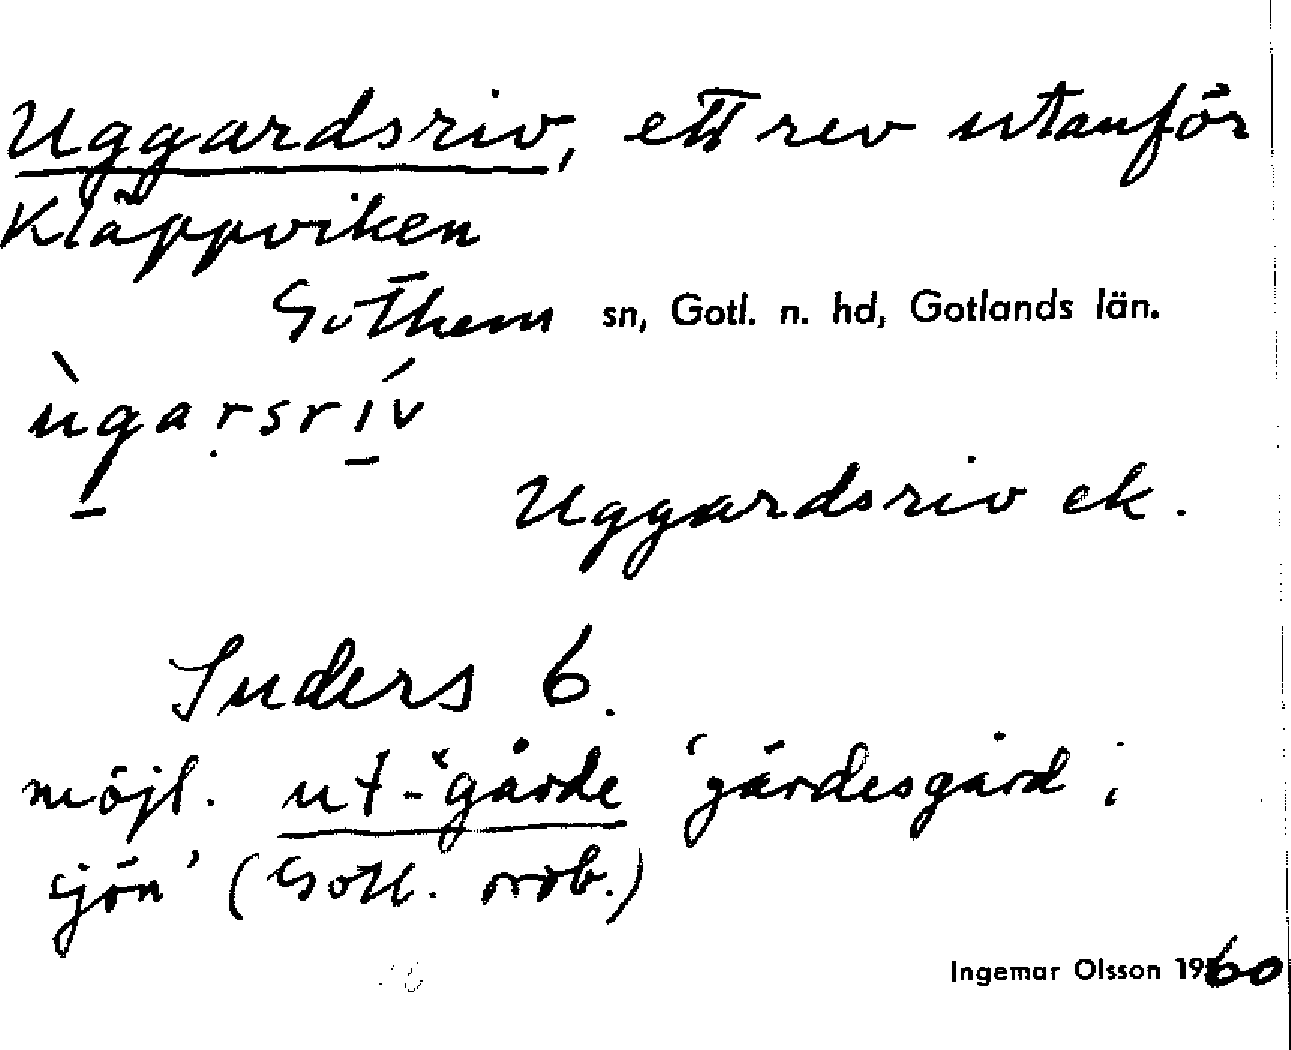 Uggardsriv, ett rev utanför
Kläppviken
Gothem sn, Gotl. n. hd, Gotlands län.
ùgaṛsrív
Uggardsriv ek.
Suders 6.
möjl. ut-gårde 'gärdesgård i
sjön' (Gotl. ordb.)
Ingemar Olsson 1960